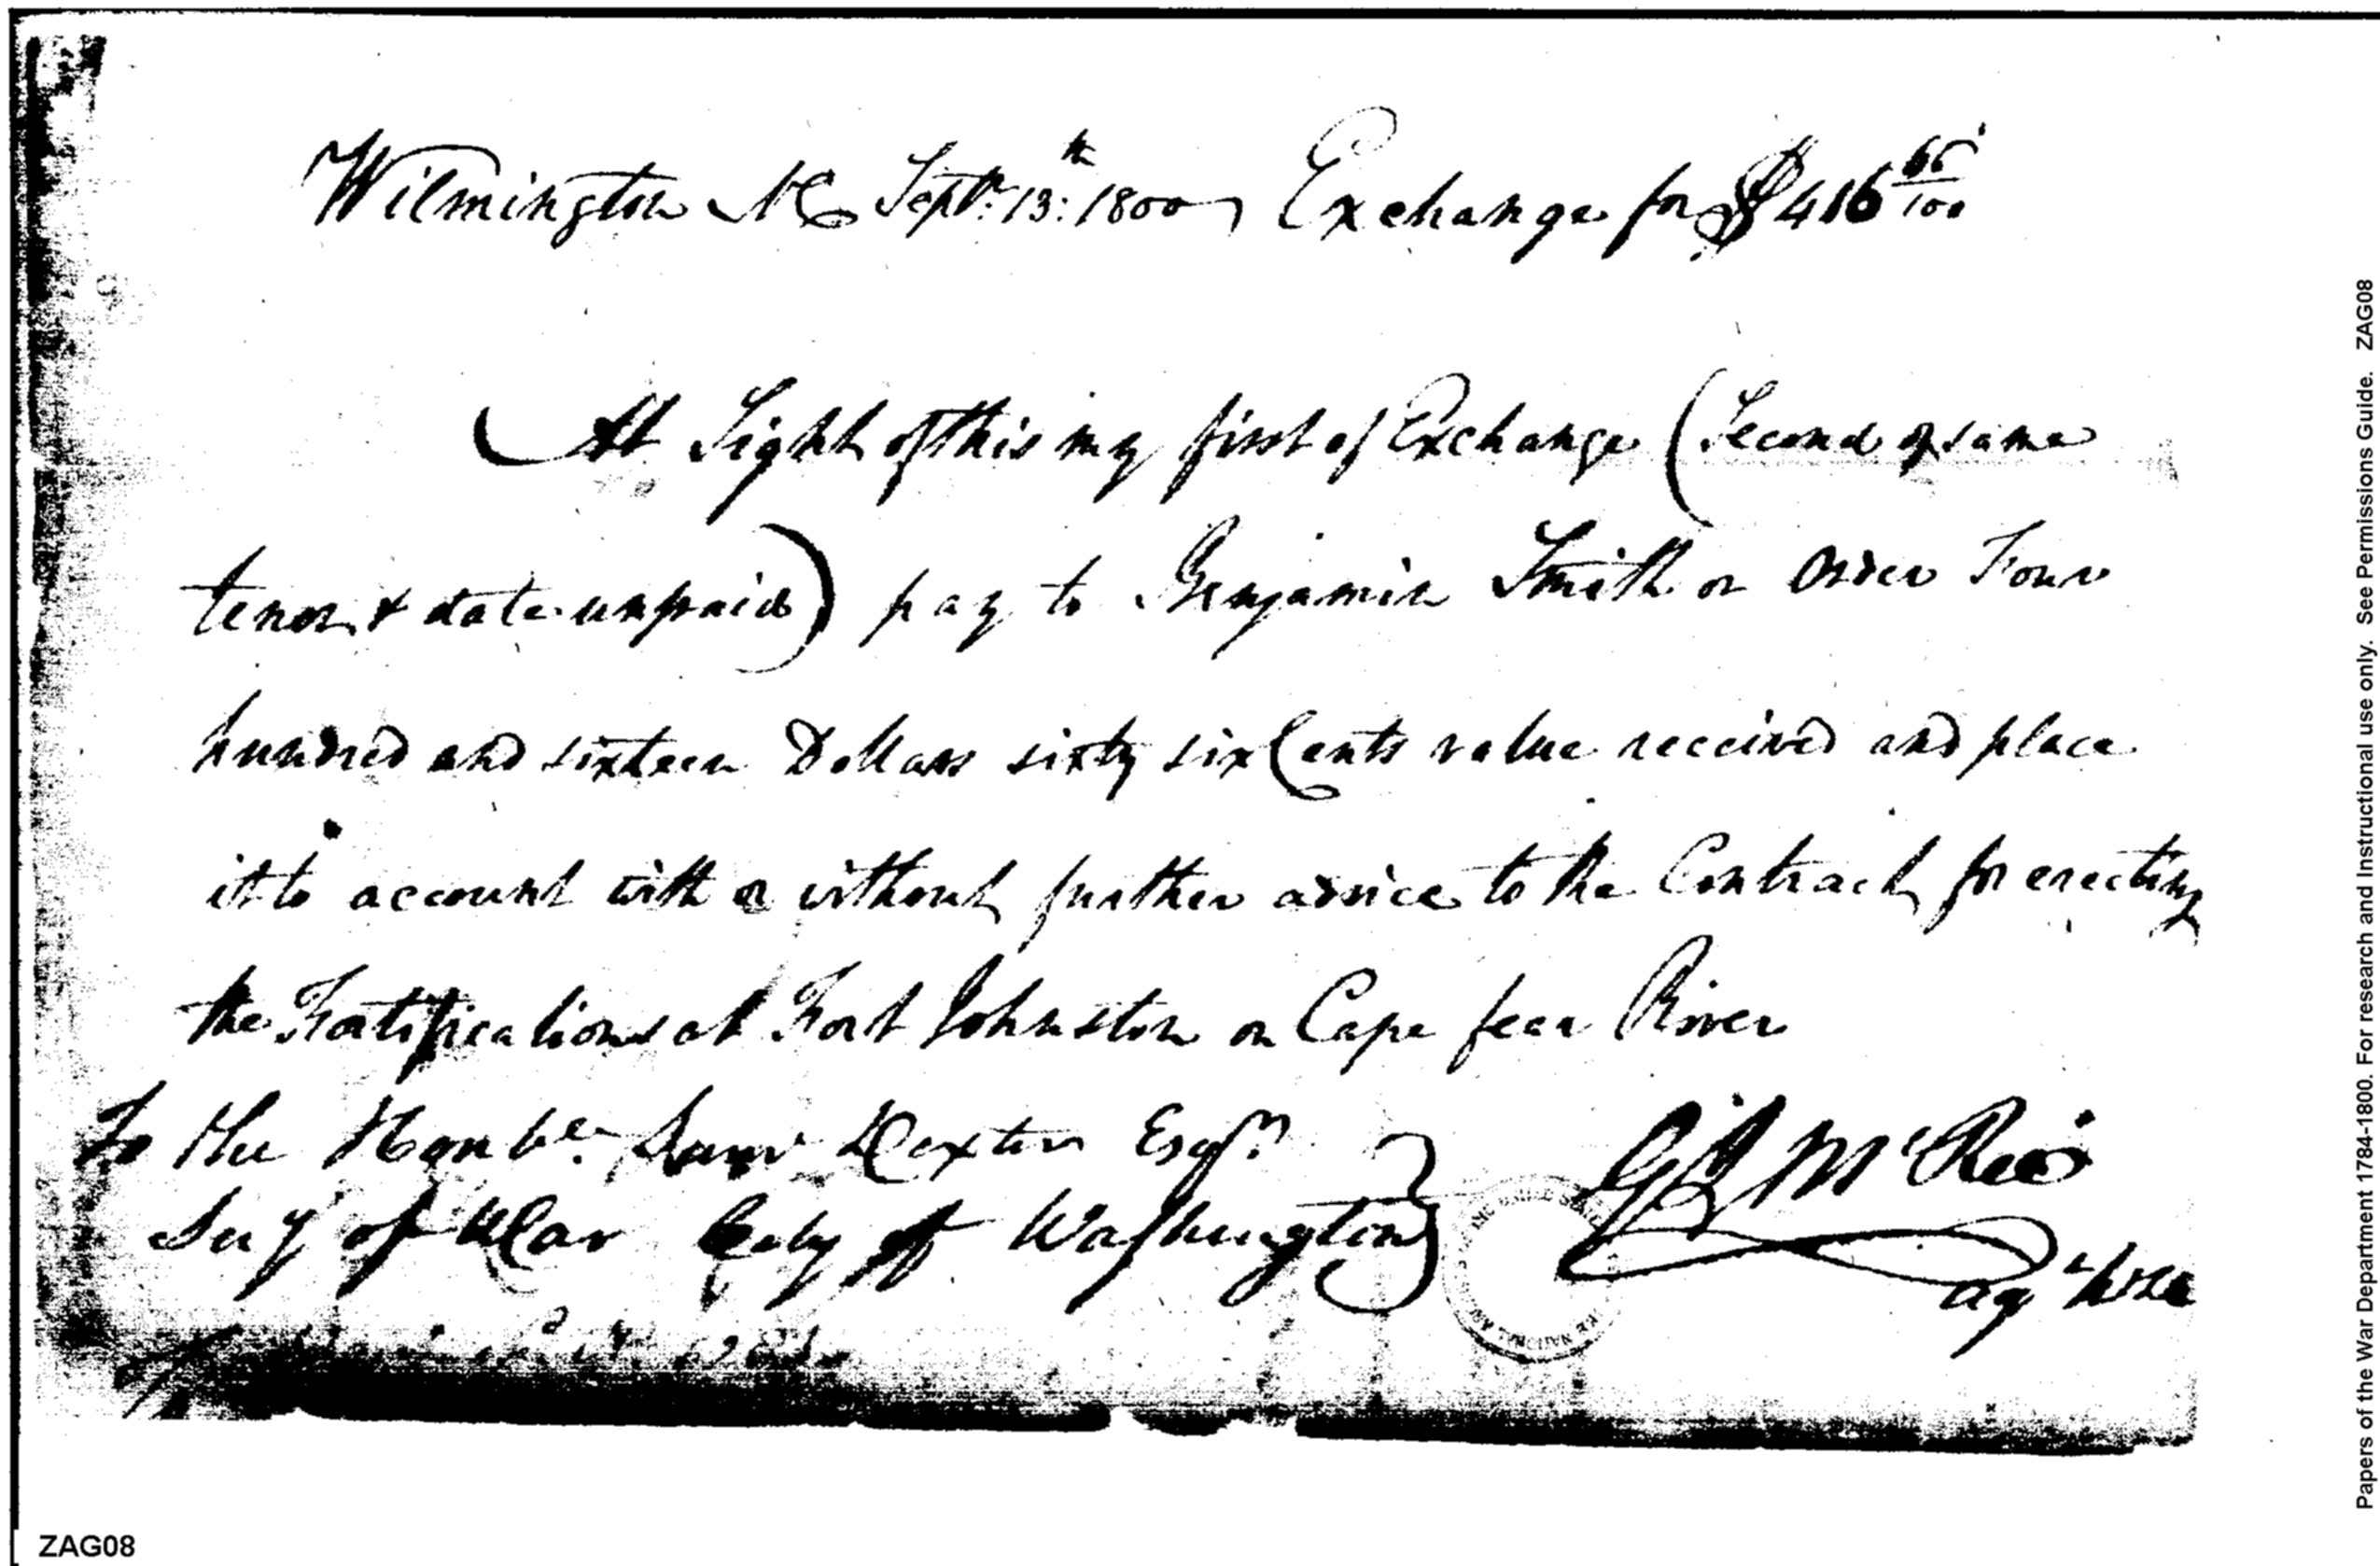 Wilmington NC Septr. 13th: 1800, Exchange for $416 66/100
At Sight of this my first of Exchange (Second of same
tenor & date unpaid) pay to Benjamin Smith or Order Four
hundred and sixteen Dollars sixty six Cents value received and place
it to account with or without further advice to the Contract for erecting
the Fortifications at Fort Johnston on Cape fear River
To the Honble. Saml Dexter Esqr.
Secy of War City of Washington
G J McRee
Papers of the War Department 1784-1800. For research and Instructional use only. See Permissions Guide. ZAG08
ZAG08